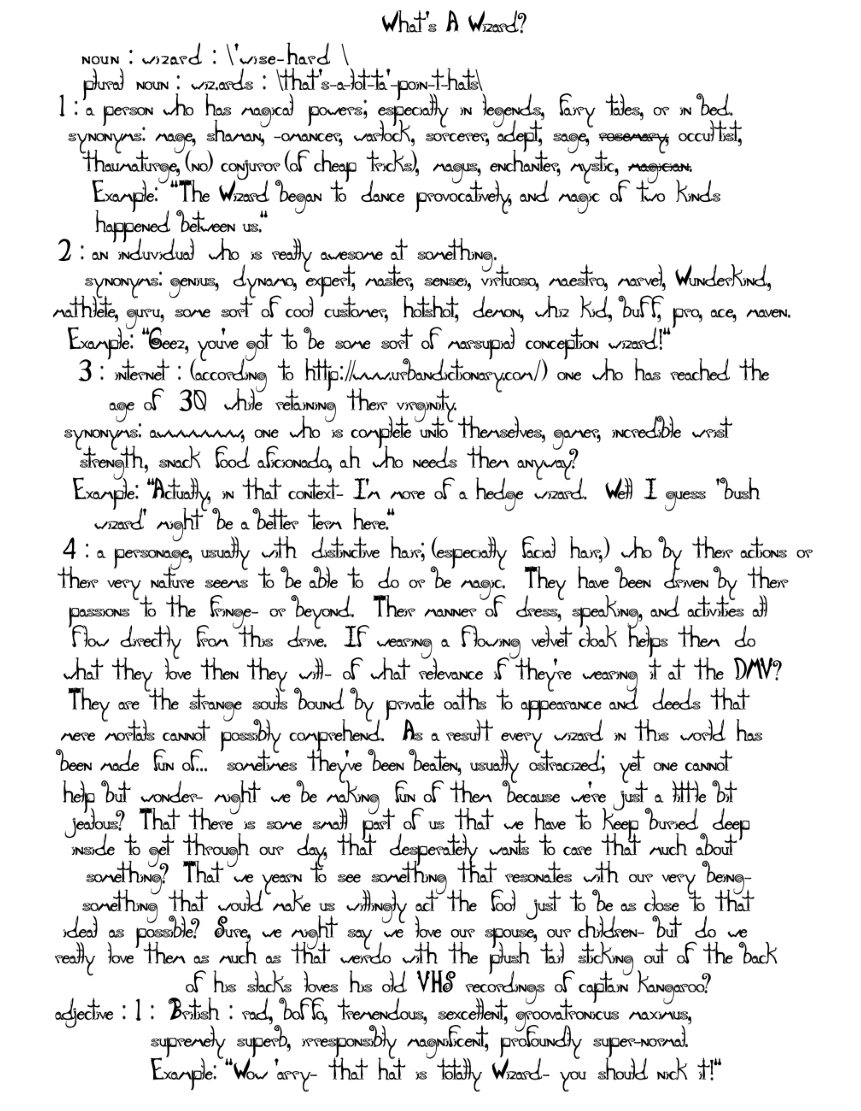 What's A Wizard?
noun : wizard : \'wise-hard \
plural noun : wizards : \that's-a-lot-ta'-poin-t-hats\
1 : a person who has magical powers; especially in legends, fairy tales, or in bed.
synonyms: mage, shaman, -omancer, warlock, sorcerer, adept, sage, rosemary, occultist,
thaumaturge, (no) conjuror (of cheap tricks), magus, enchanter, mystic, magician.
Example: "The Wizard began to dance provocatively, and magic of two kinds
happened between us."
2 : an induvidual who is really awesome at something.
synonyms: genius, dynamo, expert, master, sensei, virtuoso, maestro, marvel, Wunderkind,
mathlete, guru, some sort of cool customer, hotshot, demon, whiz kid, buff, pro, ace, maven.
Example: "Geez, you've got to be some sort of marsupial conception wizard!"
3 : internet : (according to http://www.urbandictionary.com/) one who has reached the
age of 30 while retaining their virginity.
synonyms: awwwwwww, one who is complete unto themselves, gamer, incredible wrist
strength, snack food aficionado, ah who needs them anyway?
Example: "Actually, in that context- I'm more of a hedge wizard. Well I guess 'bush
wizard' might be a better term here."
4 : a personage, usually with distinctive hair; (especially facial hair,) who by their actions or
their very nature seems to be able to do or be magic. They have been driven by their
passions to the fringe- or beyond. Their manner of dress, speaking, and activities all
flow directly from this drive. If wearing a flowing velvet cloak helps them do
what they love then they will- of what relevance if they're wearing it at the DMV?
They are the strange souls bound by private oaths to appearance and deeds that
mere mortals cannot possibly comprehend. As a result every wizard in this world has
been made fun of... sometimes they've been beaten, usually ostracized; yet one cannot
help but wonder- might we be making fun of them because we're just a little bit
jealous? That there is some small part of us that we have to keep buried deep
inside to get through our day, that desperately wants to care that much about
something? That we yearn to see something that resonates with our very being-
something that would make us willingly act the fool just to be as close to that
ideal as possible? Sure, we might say we love our spouse, our children- but do we
really love them as much as that weirdo with the plush tail sticking out of the back
of his slacks loves his old VHS recordings of captain Kangaroo?
adjective : 1 : British : rad, boffo, tremendous, sexcellent, groovatronicus maximus,
supremely superb, irresponsibly magnificent, profoundly super-normal.
Example: "Wow 'arry- that hat is totally Wizard- you should nick it!"